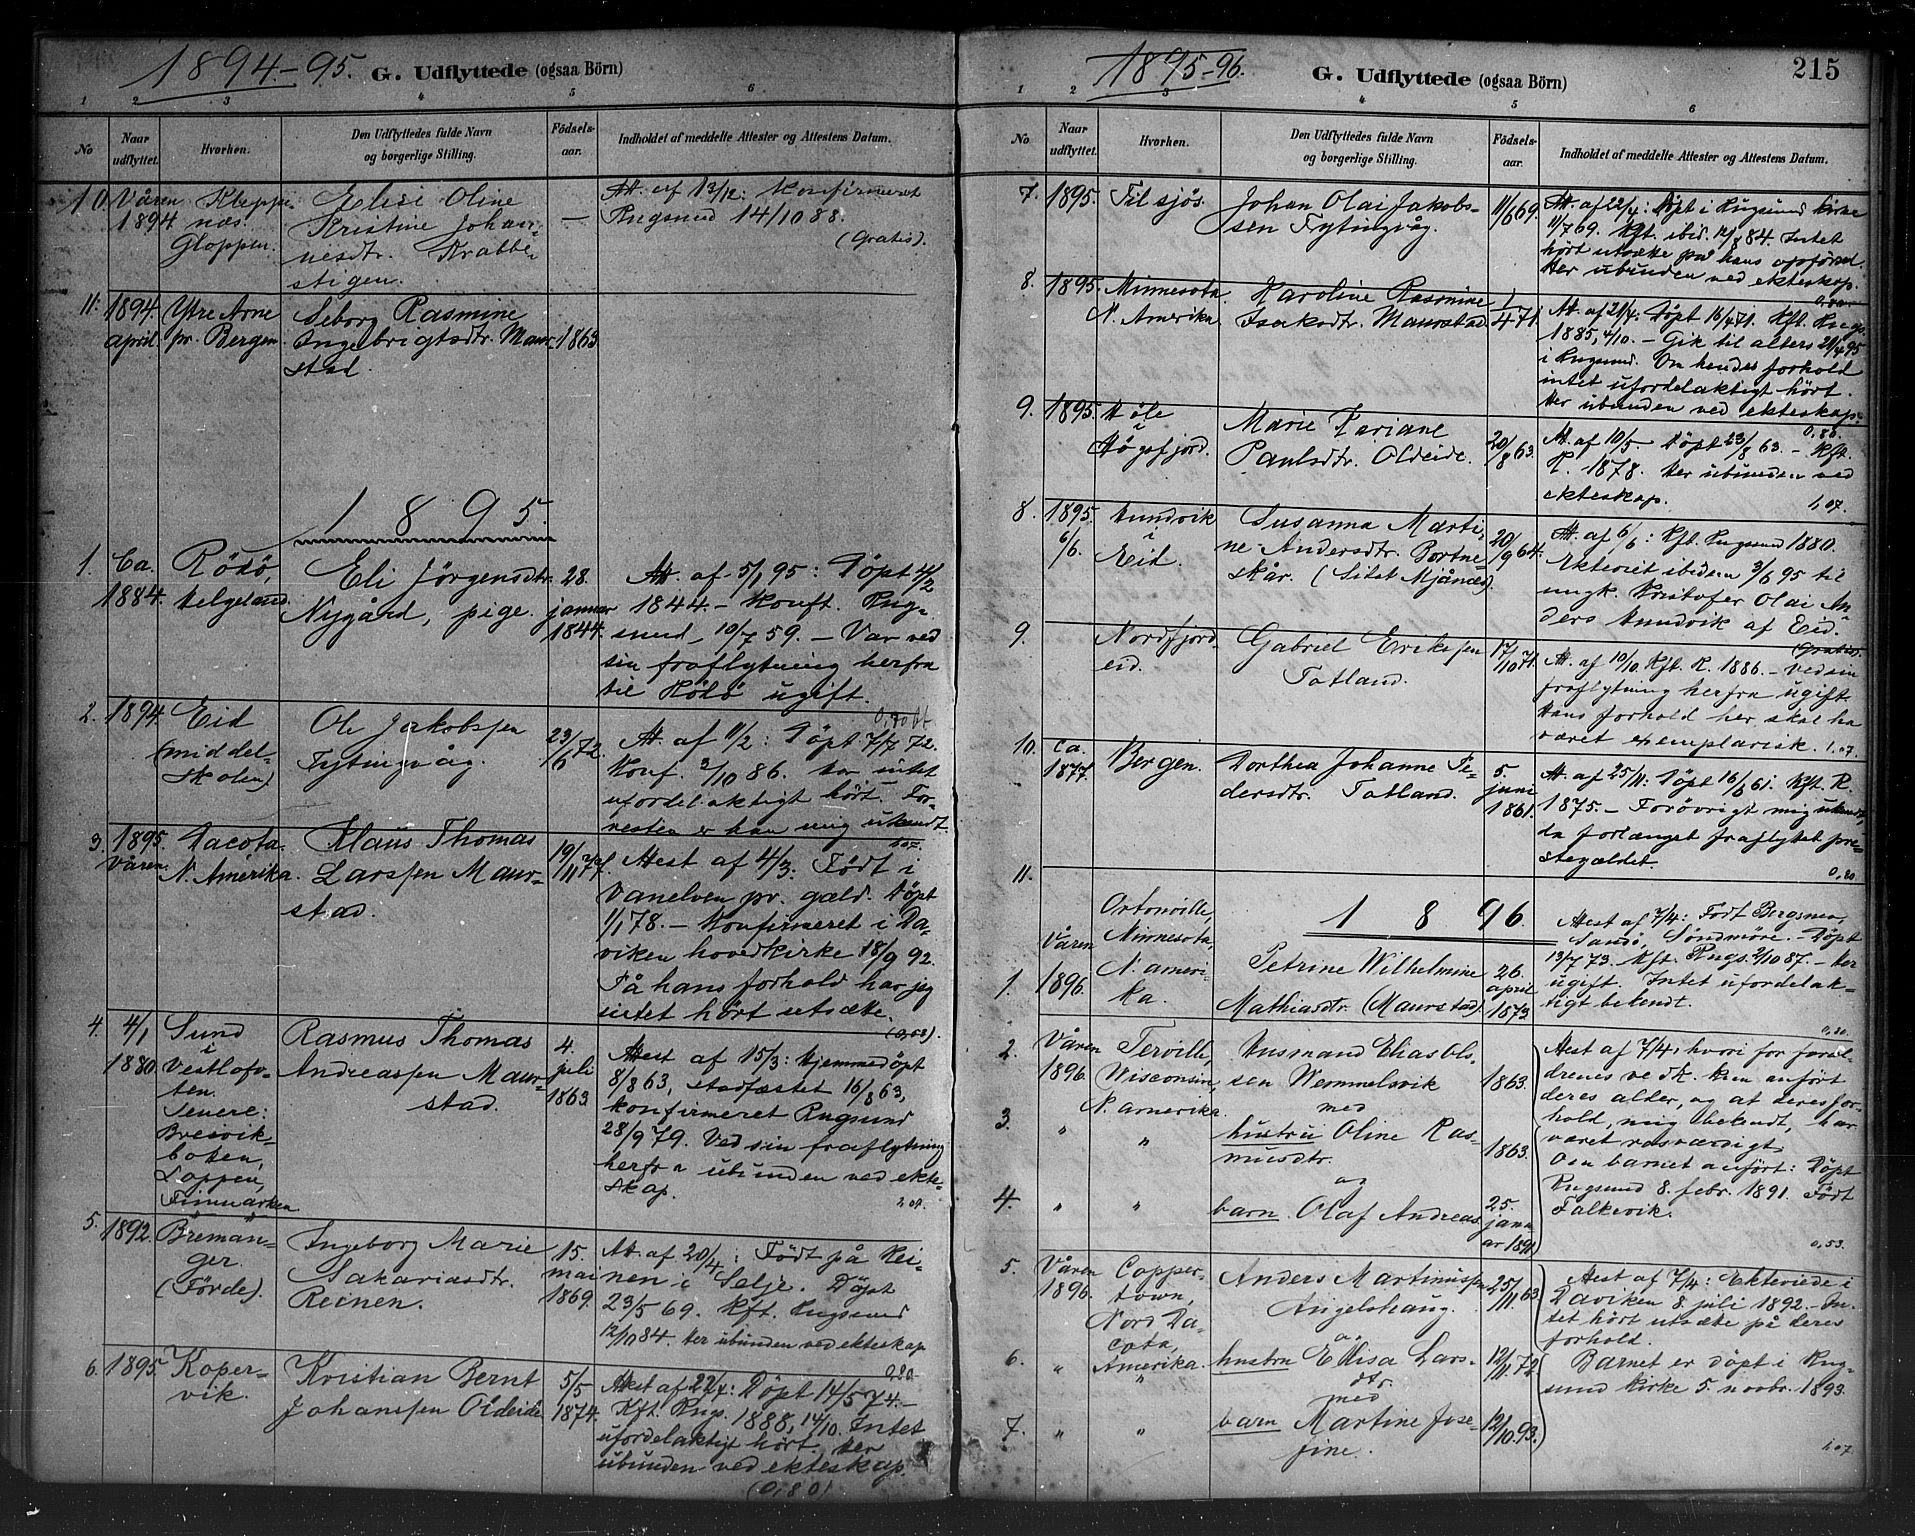 1894.-95.
G. Udflyttede (ogsaa Börn)
1 2 3 4 5 6
No
Naar udflyttet.
Hvorhen.
Den Udflyttedes fulde Navn
og borgerlige Stilling.
Födsels-
aar.
Indholdet af meddelte Attester og Attestens Datum.
10. Våren
1894
Kleppe-
næs.
Gloppen.
Elisi Oline
Kristine Johan-
nesdtr. Krabbe-
stigen.
—
Att. af 13/12: Konfirmeret
Rugsund 14/10 88.
(Gratis).
11. 1894.
april.
Ytre Arne
pr. Bergen.
Seborg Rasmine
Ingebrigtsdtr. Maur-
stad.
1863
1895.
1. Ca.
1884.
Rödö,
Helgeland.
Eli Jörgensdtr.
Nygård, pige.
28.
januar
1844.
Att. af 5/1 95: Döpt 4/2
1844. - Konft. Rug-
sund, 10/7 59. - Var ved
sin fraflytning herfra
til Rödö ugift.
2. 1894.
Eid
(middel-
skolen).
Ole Jakobssen
Tytingvåg.
23/6 72.
Att. af 11/2: Döpt 7/7 72.
Konf. 3/10 86. Har intet
ufordelaktigt hört. For-
resten er han mig ukendt.
1,07.
3. 1895.
Våren
Dacota.
N. Amerika.
Klaus Thomas
Larssen Maur-
stad.
19/11 77.
Attest af 4/3: Födt i
Vanelven pr. gæld. Döpt
1/1 78. - Konfirmeret i Da-
viken hovedkirke 18/9 92.
På hans forhold har jeg
intet hört utsætte.
4. 4/1
1880
Sund
i
Vestlofo-
ten.
Senere:
Bresvik-
botten,
Loppen,
Finmarken
Rasmus Thomas
Andreassen Maur-
stad.
4.
juli
1863
Attest af 15/3: Hjemmedöpt
8/8 63, stadfæstet 16/8 63,
konfirmeret Rugsund
28/9 79. Ved sin fraflytning
herfra ubunden ved ekte-
skap.
5. 1892.
Bremang-
er.
(Förde).
Ingeborg Marie
Sakariasdtr.
Reinen.
15.
mai
1869.
Att. af 20/4: Födt på Rei-
nen i Selje. Döpt
23/5 69. Kft. Rugsund
12/10 84. Her ubunden ved ekteskap
0,80.
6. 1895.
Koper-
vik.
Kristian Bernt
Johanssen Oldeide
5/5
1874.
Attest af 22/4: Döpt 14/5 74.-
Kft. Rugs. 1888, 14/10. Intet
ufordelaktigt hört. Her
ubunden ved ekteskap.
(0,80)
1895-96.
G. Udflyttede (ogsaa Börn)
215
1 2 3 4 5 6
No
Naar udflyttet.
Hvorhen.
Den Udflyttedes fulde Navn
og borgerlige Stilling.
Födsels-
aar.
Indholdet af meddelte Attester og Attestens Datum.
7. 1895.
Til sjös.
Johan Olai Jakobs-
sen Tytingvåg.
11/6 69.
Att. af 22/4: Döpt i Rugsund kirke
11/7 69. Kft. ibid. 12/8 84. Intet
hört utsætte på hans opförsel.
Her ubunden ved ekteskap.
8. 1895.
Minnesota
N. Amerika.
Karoline Rasmine
Isaksdtr. Maurstad.
1/4 71.
Att. af 21/4: Döpt 16/4 71. Kft. Rugs.
1885, 4/10. - Gik til alters 21/4 95
i Rugsund. Om hendes forhold
intet ufordelaktigt hört.
Her ubunden ved ekteskap.
0,80.
9. 1895.
Höle
i
Högsfjord.
Marie Tariane
Paulsdtr. Oldeide.
20/8 63.
Att. af 10/5. Döpt 23/8 63. - Kft.
R. 1878. Her ubunden ved
ekteskap.
1,07.
8. 1895.
6/6.
Hundvik
i
Eid.
Susanna Marti-
ne Andersdtr. Bortne-
skår. (Sitst Mjånes).
20/9 64.
Att. af 6/6: Kft. Rugsund 1880.
Ekteviet ibidem 3/6 95 til
ungk. Kristofer Olai An-
ders Hundvik af Eid.
(Gratis)
9.
Nordfjord
eid.
Gabriel Erikssen
Totland.
17/10 71.
Att. af 10/10. Kft. R. 1886. - Ved sin
fraflytning herfra ugift.
Hans forhold her skal ha
været exemplarisk. 1,07.
10. ca.
1877.
Bergen.
Dorthea Johanne Pe-
dersdtr. Totland.
5.
juni
1861.
Att. af 25/11: Döpt 16/6 61. Kft. R.
1875. - Forövrigt mig ukendt,
da forlænget fraflyttet præ-
stegældet.
0,80.
11.
1896.
1. Våren
1896.
Ortonville,
Minnesota,
N. ameri-
ka.
Petrine Wilhelmine
Mathiasdtr. (Maurstad).
26.
april
1873
Attest af 7/4: Födt Bergsnes,
Sandö, Söndmöre. - Döpt
13/7 73. Kft. Rugs. 2/10 87. - Her
ugift. Intet ufordelak-
tigt bekendt.
0,80.
2. Våren
1896.
Terville,
Wisconsin,
N. amerika.
Husmand Elias Ol-
sen Wemmelsvik
med
1863.
Attest af 7/4, hvori for foræl-
drenes vedk. kun anfört
deres alder, og at deres for-
hold, mig bekendt, har
været rosværdigt.
Om barnet anfört: Döpt
Rugsund 8. febr. 1891. Födt
Falkevik.
0,53.
3. " "
hustru Oline Ras-
musdtr.
og
1863.
4. " "
barn Olaf Andreas
25.
janu-
ar 1891
5. Våren
1896.
Copper-
town,
Nord Da-
cota,
Amerika.
Anders Martinussen
Angelshaug.
25/11 63.
Attest af 7/4: Ekteviede i
Daviken 8. juli 1892. - In-
tet hört utsætte på deres
forhold.
Barnet er döpt i Rug-
sund kirke 5. novbr. 1893.
1,07
6. " "
hustru Elisa Lars-
dtr.
med
12/11 72
7. " "
barn Martine Jose-
fine.
12/10 93.